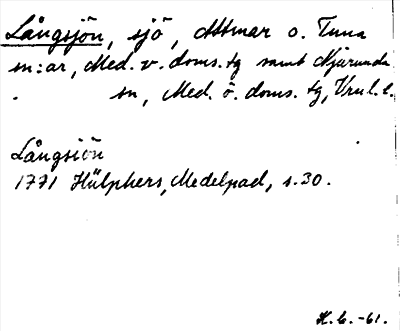 Långsjön, sjö, Attmar o. Tuna
sn:ar, Med. v. doms. tg samt Njurunda
sn, Med. ö. doms. tg, Vrnl. l.
Långsiön
1771 Hülphers, Medelpad, s. 30.
H. G. -61.